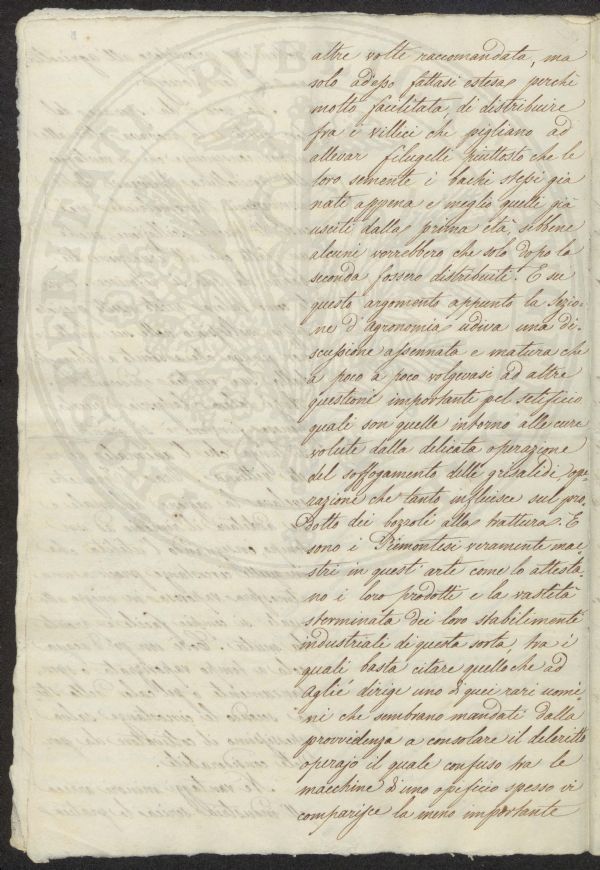 altre volte raccomandata, ma
solo adesso fattasi estesa, perchè
molto facilitata, di distribuire
fra i villici che pigliano ad
allevar filugelli piuttosto che le
loro semente i bachi stessi già
nati appena e meglio quelli già
usciti dalla prima età, sebbene
alcuni vorrebbero che solo dopo la
seconda fossero distribuiti. E su
questo argomento appunto la Sezio-
ne d'agronomia udiva una di-
scussione assennata e matura che
a poco a poco volgevasi ad altre
questioni importante pel setificio
quali son quelle intorno alle cure
volute dalla delicata operazione
del soffogamento delle grisalidi, ope-
razione che tanto influisce sul pro-
dotto dei bozzoli alla trattura. E
sono i Piemontesi veramente mae-
stri in quest'arte come lo attesta-
no i loro prodotti e la vastità
sterminata dei loro stabilimenti
industriali di questa sorta, tra i
quali basta citare quello che ad
Agliè dirige uno di quei rari uomi-
ni che sembrano mandati dalla
provvidenza a consolare il delicitto
operajo il quale confuso tra le
macchine d'uno opificio spesso vi
comparisce la meno importante